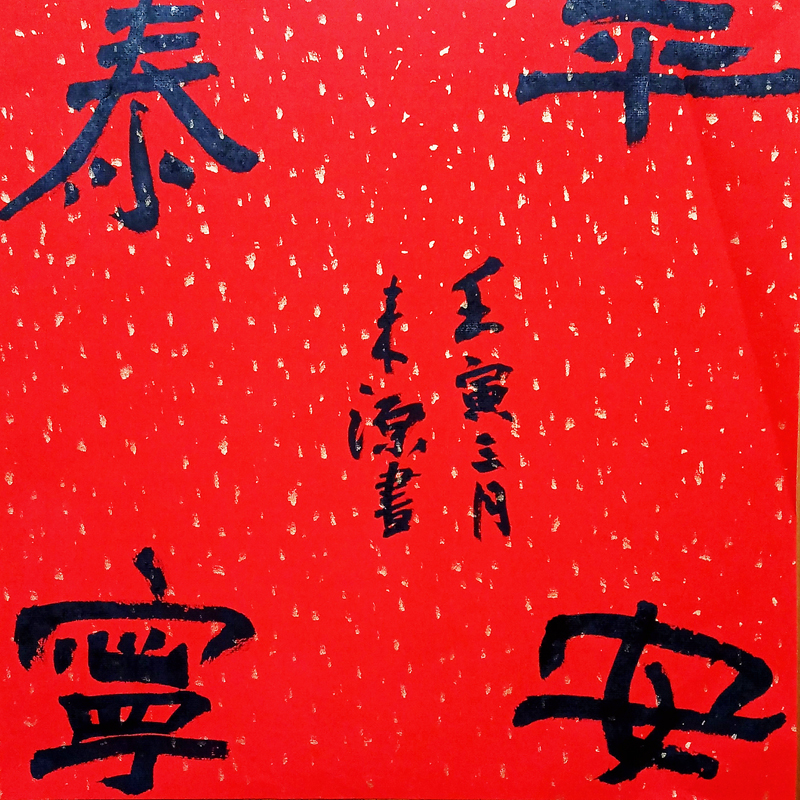 平安
泰寧
壬寅三月
来源書